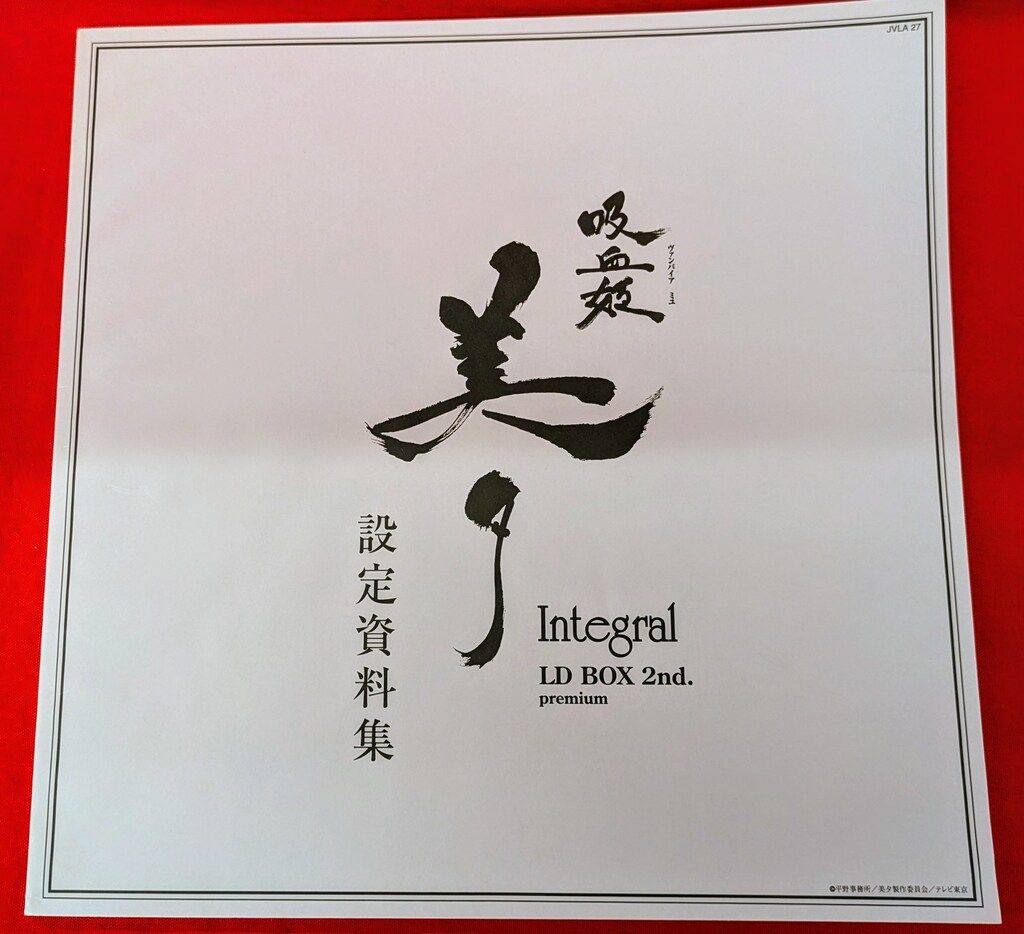 JVLA 27
吸血姫
ヴァンパイア ミユ
美夕
設定資料集
Integral
LD BOX 2nd.
premium
©平野事務所／美夕製作委員会／テレビ東京